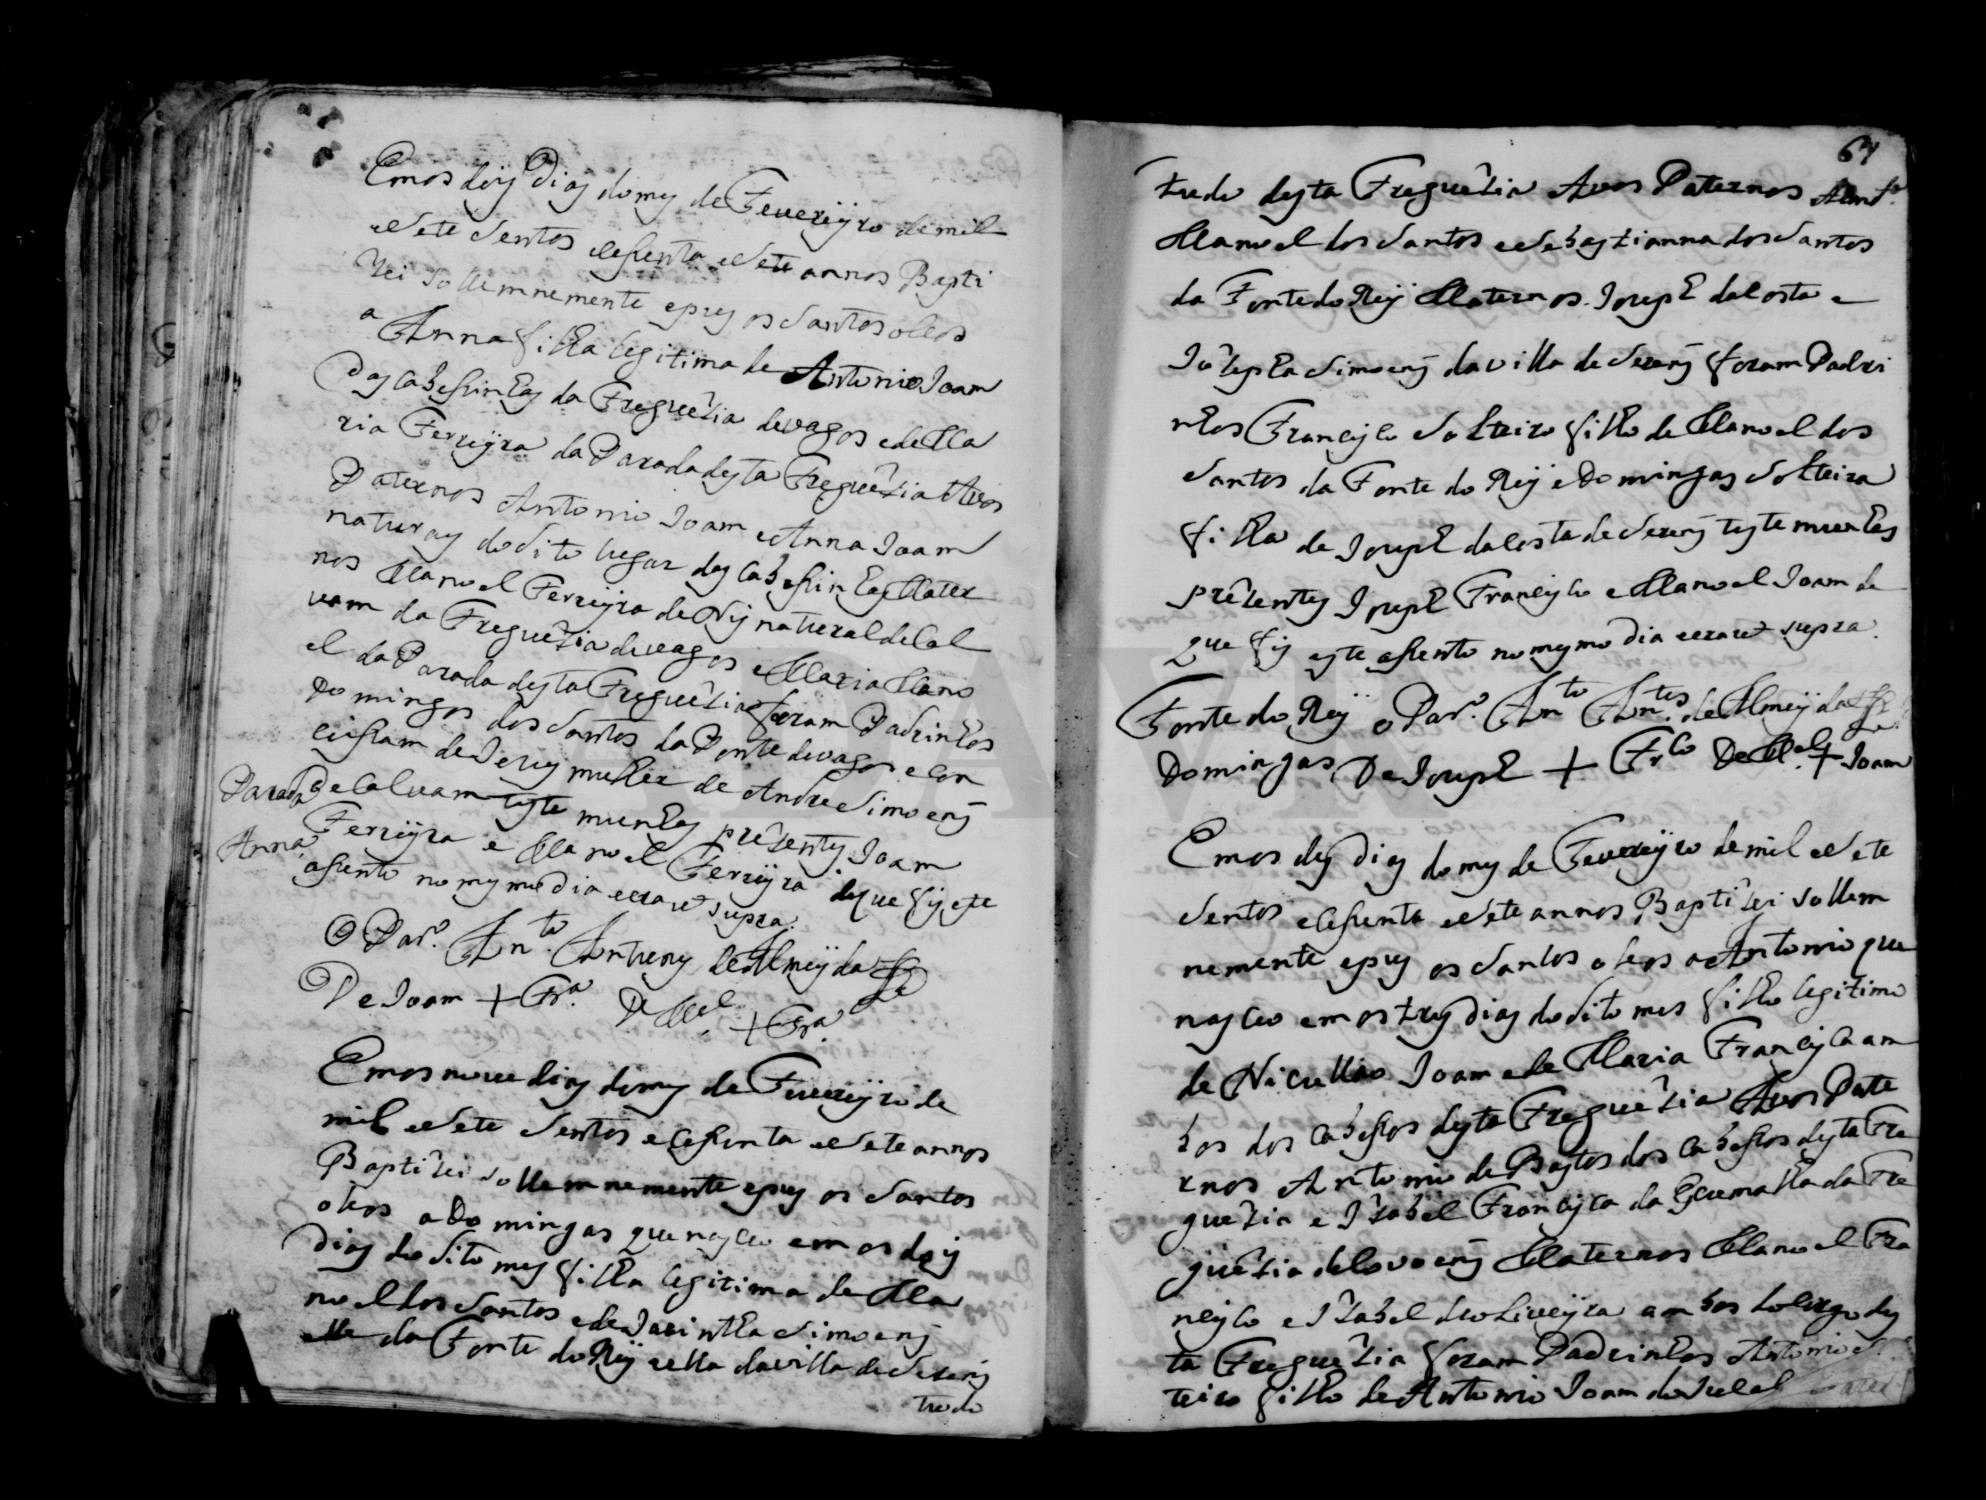 Emos doiz Dias do mes de Fevereÿro de mil
e Sete Sentos e Sesenta e Sete annos Bapti
zei Sollemnemente e puz os Santos oleos
a Anna filha legitima de Antonio Joam
das Cabessinhas da Freguezia de Vagos e de Ma
ria Ferreÿra da Parada desta Freguezia Avos
Paternos Antonio Joam e Anna Joam
naturaes do dito lugar das Cabessinhas Mater
nos Manoel Ferreÿra de natural de Cal
vam da Freguezia de Vagos e Maria Mano
el da Parada desta Freguezia foram Padrinhos
Domingos dos Santos da Ponte de Vagos e Con
ceissam de Jesus mulher de Andre Simoens
de Calvam testemunhas prezentes Joam
Parada
Anna
Ferreÿra e Manoel Ferreÿra de que fiz este
assento no mesmo dia era ut supra.
O Par.º Ant.º Antunes de Almeÿda
De Joam + Fr.ª De M.el + Fr.ª
Emos nove dias do mes de Fevereÿro de
mil e Sete Sentos e Sesenta e Sete annos
Baptizei Sollemnemente e puz os Santos
oleos a Domingas que nasceo emos dois
Dias do dito mes filha legitima de Ma
noel dos Santos e de Jacintha Simoens
elle da Fonte do Reÿ e ella da villa de Sozens
tudo
67
tudo desta Freguezia Avos Paternos
Manoel dos Santos e Sebastianna dos Santos
da Fonte do Reÿ Maternos Joseph da Costa e
Jozepha Simoens da villa de Sozens foram Padri
nhos Francisco Solteiro filho de Manoel dos
Santos da Fonte do Reÿ e Domingas Solteira
filha de Joseph da Costa de Sozens testemunhas
prezentes Joseph Francisco e Manoel Joam de
que fiz este assento no mesmo dia era ut supra.
Fonte do Reÿ o Par.º Ant.º Ant.es de Almeÿda
Domingas De Joseph + Fr.co De M.el + Joam
Emos des Dias do mes de Fevereÿro de mil e Sete
Sentos e Sesenta e Sete annos Baptizei Sollem
nemente e puz os Santos oleos a Antonio que
nasceo emos tres Dias do dito mes filho legitimo
de Nicullao Joam e de Maria Francisca am
bos dos Cabessos desta Freguezia Avos Pate
rnos Antonio de Bastos dos Cabessos desta Fre
guezia e Izabel Francisca da da Fre
guezia de Covoens Maternos Manoel Fra
ncisco e Izabel de Oliveÿra ambos do lugo des
ta Freguezia foram Padrinhos Antonio Sol
teiro filho de Antonio Joam do